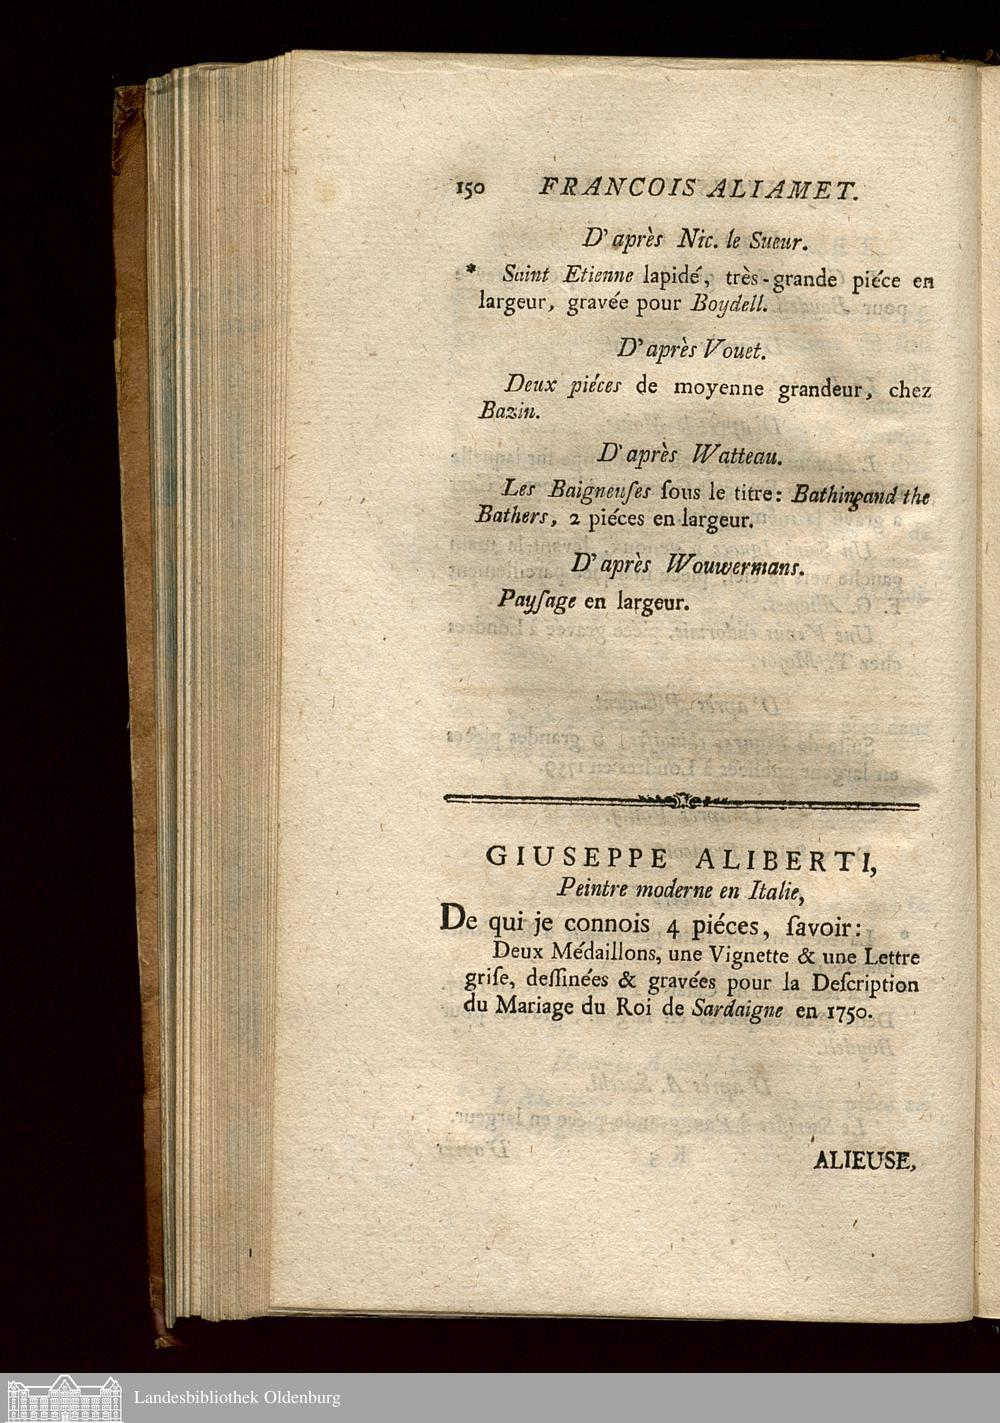 150 FRANCOIS ALIAMET.
D'après Nic. le Sueur.
* Saint Etienne lapidé, très-grande piéce en
largeur, gravée pour Boydell.
D'après Vouet.
Deux piéces de moyenne grandeur, chez
Bazin.
D'après Watteau.
Les Baigneuſes ſous le titre: Bathingand the
Bathers, 2 piéces en largeur.
D'après Wouwermans.
Payſage en largeur.
GIUSEPPE ALIBERTI,
Peintre moderne en Italie,
De qui je connois 4 piéces, ſavoir:
Deux Médaillons, une Vignette & une Lettre
griſe, deſſinées & gravées pour la Deſcription
du Mariage du Roi de Sardaigne en 1750.
ALIEUSE,
Landesbibliothek Oldenburg